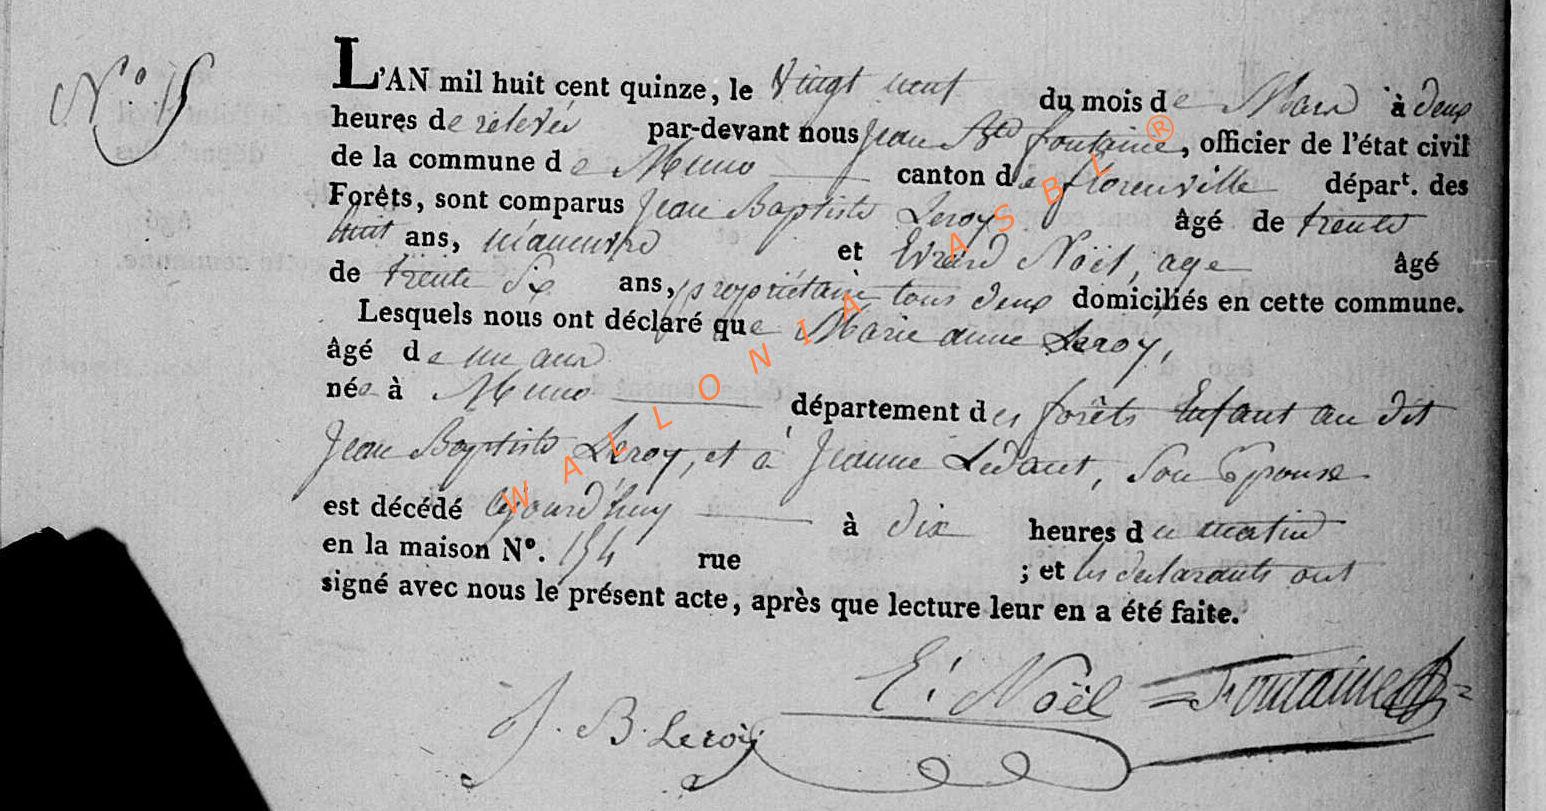 N° 15
L'AN mil huit cent quinze, le Vingt neuf du mois de Mars à deux
heures de relevée par-devant nous Jean Bte fontaine, officier de l'état civil
de la commune de Muno canton de florenville départ. des
Forêts, sont comparus Jean Baptiste Leroy âgé de trente
huit ans, manœuvre et Evrard Noël, age âgé
de trente Six ans, propriétaire tous deux domiciliés en cette commune.
Lesquels nous ont déclaré que Marie anne Leroy,
âgé de un ans
née à Muno département des forêts Enfant au dit
Jean Baptiste Leroy, et à Jeanne Ledant, Son Epouse
est décédé aujourd'huy à dix heures du matin
en la maison N°. 154 rue ; et les declarants ont
signé avec nous le présent acte, après que lecture leur en a été faite.
E: Noël Fontaine
J. B. Leroy
WALLONIA ASBL ®